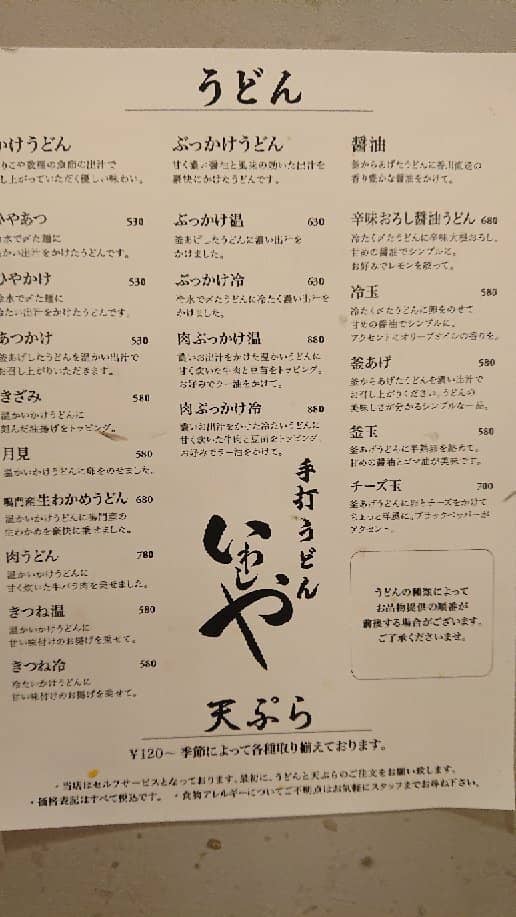 うどん
かけうどん
の出汁で
し上がっていただく優しい味わい。
ひやあつ 530
水で〆た麺に
かい出汁をかけたうどんです。
ひやかけ 530
水で〆た麺に
たい出汁をかけたうどんです。
あつかけ 530
釜あげしたうどんを温かい出汁で
お召し上がりいただきます。
きざみ 580
温かいかけうどんに
刻んだ味揚げをトッピング。
月見 580
温かいかけうどんに卵をのせました。
鳴門産生わかめうどん 680
温かいかけうどんに鳴門産の
生わかめを豪快に乗せました。
肉うどん 780
温かいかけうどんに
甘く炊いた牛バラ肉を乗せました。
きつね温 580
温かいかけうどんに
甘い味付けのお揚げを乗せて。
きつね冷 580
冷たいかけうどんに
甘い味付けのお揚げを乗せて。
ぶっかけうどん
甘く濃い醤油と風味の効いた出汁を
豪快にかけたうどんです。
ぶっかけ温 630
釜あげしたうどんに濃い出汁を
かけました。
ぶっかけ冷 630
水で〆たうどんに冷たく濃い出汁を
かけました。
肉ぶっかけ温 880
濃いお出汁をかけた温かいうどんに
甘く炊いた牛肉と豆苗をトッピング。
お好みでラー油をかけて。
肉ぶっかけ冷 880
濃いお出汁をかけた冷たいうどんに
甘く炊いた牛肉と豆苗をトッピング。
お好みでラー油をかけて。
醤油
釜からあげたうどんに香川直送の
香り豊かな醤油をかけて。
辛味おろし醤油うどん 680
冷たく〆たうどんに辛味大根おろし。
甘めの醤油でシンプルに。
お好みでレモンを絞って。
冷玉 580
冷たく〆たうどんに卵をのせて
甘めの醤油でシンプルに。
アクセントにオリーブオイルの香りを。
釜あげ 580
釜からあげたうどんを濃い出汁で
お召し上がりください。うどんの
美味しさが分かるシンプルな一品。
釜玉 580
釜あげうどんに半熟卵を絡めて。
甘めの醤油とゴマ油が美味です。
チーズ玉 700
釜あげうどんに卵とチーズをかけて
ちょっと洋風に。ブラックペッパーが
アクセント。
手打うどん
いわしや
うどんの種類によって
お品物提供の順番が
前後する場合がございます。
ご了承くださいませ。
天ぷら
¥120～ 季節によって各種取り揃えております。
・当店はセルフサービスとなっております。最初に、うどんと天ぷらのご注文をお願い致します。
・価格表記はすべて税込です。 ・食物アレルギーについてご不明点はお気軽にスタッフまでお尋ね下さい。